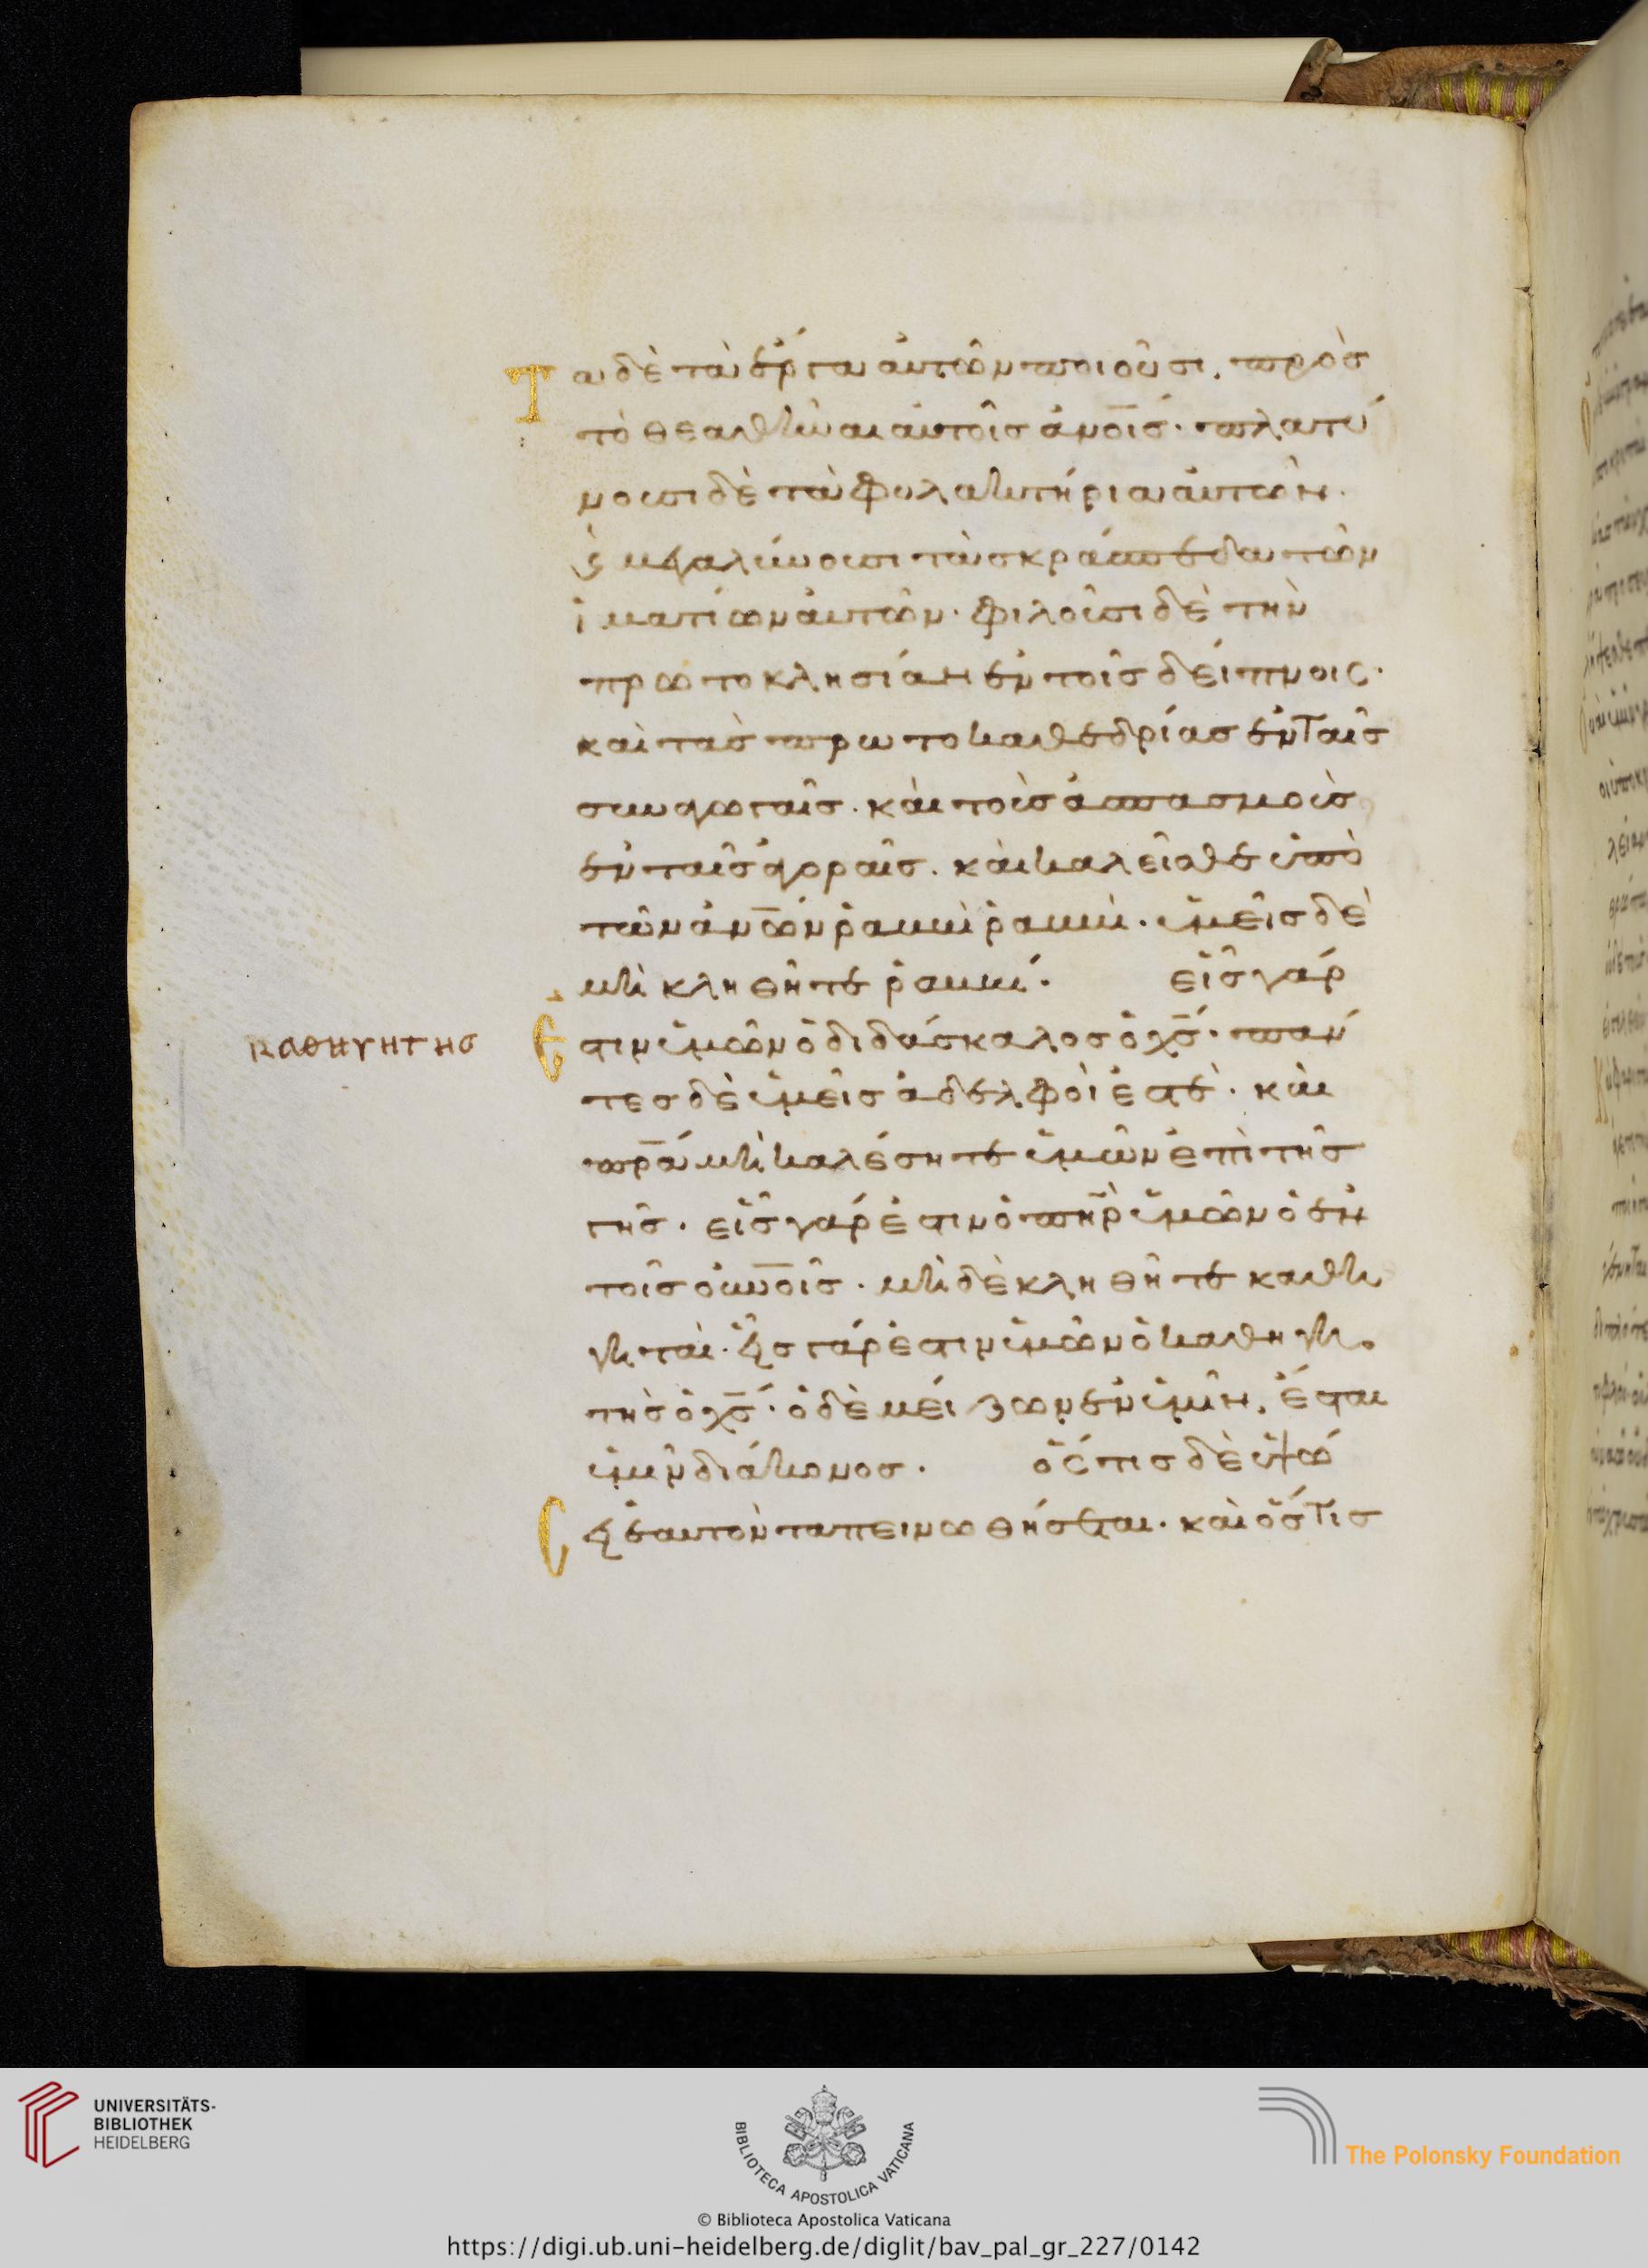 Τὰ δὲ τὰ ἔργα αὐτῶν ποιοῦσι, πρὸς
τὸ θεαθῆναι αὐτοῖς ἀνοῖς· πλατύ
νουσι δὲ τὰ φυλακτήρια αὐτῶν·
ϗ μεγαλύνουσι τὰ σκράσπεδα τῶν
ἱματίων αὐτῶν· φιλοῦσι δὲ τὴν
πρωτοκλησίαν ἐν τοῖς δείπνοις·
καὶ τὰς πρωτοκαθεδρίας ἐν ταῖς
συναγωγαῖς· καὶ τοὺς ἀσπασμοὺς
ἐν ταῖς ἀγοραῖς· καὶ καλεῖσθε ὑπὸ
τῶν ἀνων ῥαββὶ ῥαββί· ὑμεῖς δὲ
μὴ κληθῆτε ῥαββί· εἷς γάρ
Ἐστιν ὑμῶν ὁ διδάσκαλος ὁ χς· πάν
τες δὲ ὑμεῖς ἀδελφοί ἐστέ· καὶ
πρα μὴ καλέσητε ὑμῶν ἐπὶ τῆς
γῆς· εἷς γάρ ἐστιν ὁ πηρ ὑμῶν ὁ ἐν
τοῖς οὐνοῖς· μὴ δὲ κληθῆτε καθη
γηταί· εἷς γάρ ἐστιν ὑμῶν ὁ καθηγη
τὴς ὁ χς· ὁ δὲ μείζων ἐν ὑμῖν, ἔσται
ὑμῶν διάκονος· ὅστις δὲ ὑψώ
Σει ἑαυτὸν ταπεινωθήσεται· καὶ ὅστις
καθηγητησ
UNIVERSITÄTS-
BIBLIOTHEK
HEIDELBERG
BIBLIOTECA APOSTOLICA VATICANA
© Biblioteca Apostolica Vaticana
The Polonsky Foundation
https://digi.ub.uni-heidelberg.de/diglit/bav_pal_gr_227/0142